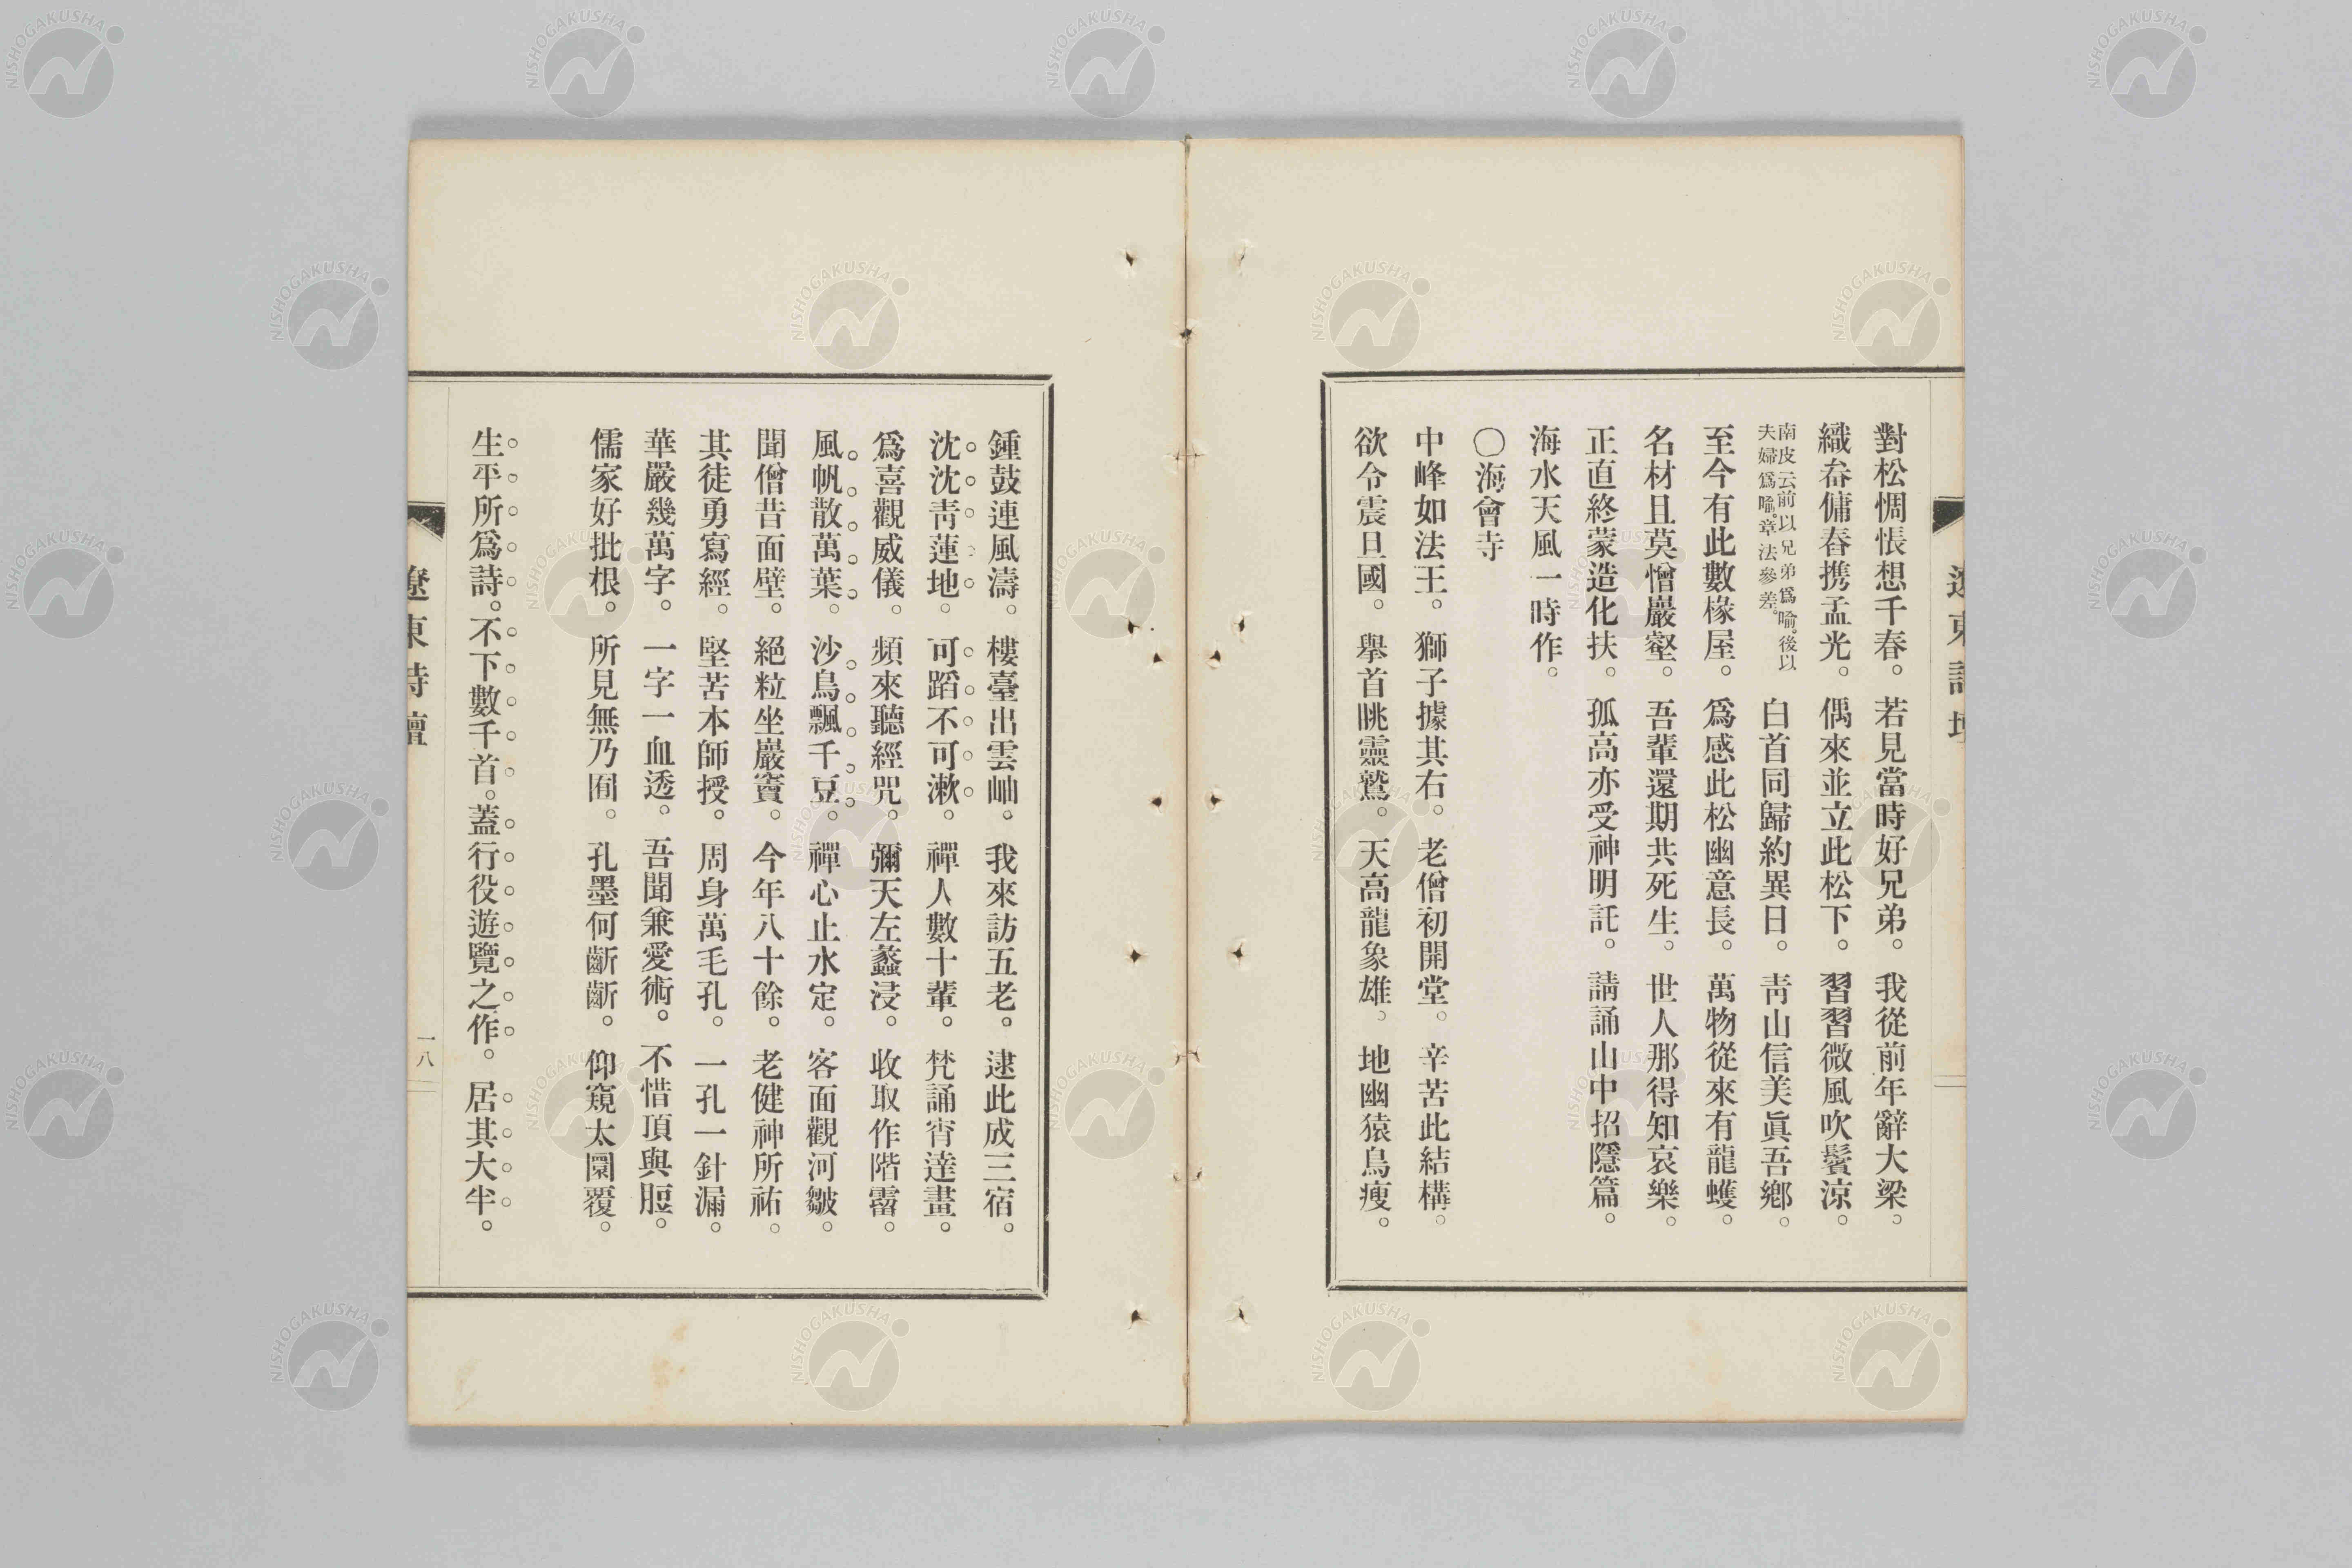 對松惆悵想千春。若見當時好兄弟。我從前年辭大梁。
織畚傭舂携孟光。偶來並立此松下。習習微風吹鬢涼。
南皮云前以兄弟爲喩。後以
夫婦爲喩。章法參差。
白首同歸約異日。靑山信美眞吾鄕。
至今有此數椽屋。爲感此松幽意長。萬物從來有龍蠖。
名材且莫憎巖壑。吾輩還期共死生。世人那得知哀樂。
正直終蒙造化扶。孤高亦受神明託。請誦山中招隱篇。
海水天風一時作。
〇海會寺
中峰如法王。獅子據其右。老僧初開堂。辛苦此結構。
欲令震旦國。舉首眺靈鷲。天高龍象雄。地幽猿鳥瘦。
鍾鼓連風濤。樓臺出雲岫。我來訪五老。逮此成三宿。
沈沈靑蓮地。可蹈不可漱。禪人數十輩。梵誦宵達晝。
爲喜觀威儀。頻來聽經咒。彌天左蠡浸。收取作階霤。
風帆散萬葉。沙鳥飄千豆。禪心止水定。客面觀河皺。
聞僧昔面壁。絕粒坐巖竇。今年八十餘。老健神所祐。
其徒勇寫經。堅苦本師授。周身萬毛孔。一孔一針漏。
華嚴幾萬字。一字一血透。吾聞兼愛術。不惜頂與脰。
儒家好批根。所見無乃囿。孔墨何齗齗。仰窺太圜覆。
生平所爲詩。不下數千首。蓋行役遊覽之作。居其大半。
遼東詩壇
一八